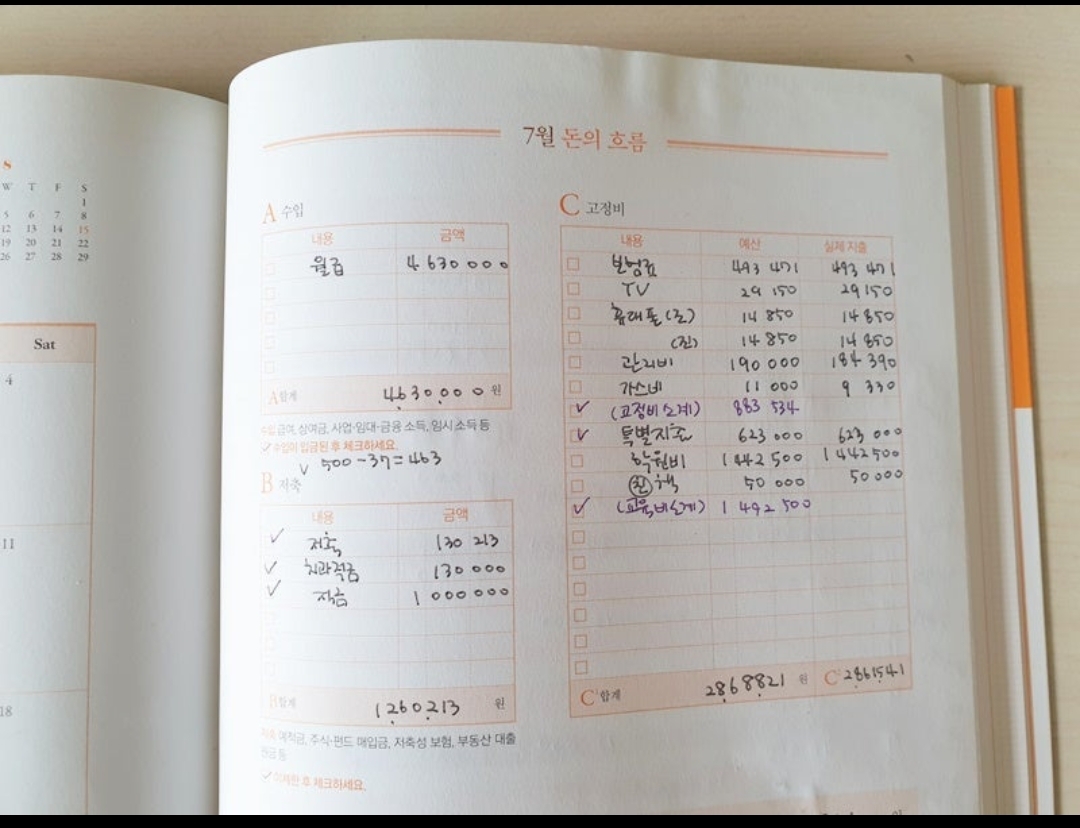 S
W T F S
1
5 6 7 8
12 13 14 15
19 20 21 22
26 27 28 29
Sat
4
11
18
7월 돈의 흐름
A 수입
내용 금액
월급 4 630 000
A합계 4630000 원
수입 급여, 상여금, 사업·임대·금융 소득, 임시 소득 등
✓ 수입이 입금된 후 체크하세요.
✓ 500 - 37 = 463
B 저축
내용 금액
✓ 저축 130 213
✓ 치과적금 130 000
✓ 적금 1 000 000
B합계 1260213 원
저축 예적금, 주식·펀드 매입금, 저축성 보험, 부동산 대출
원금 등
✓ 이체한 후 체크하세요.
C 고정비
내용 예산 실제 지출
보험료 493 471 493 471
TV 29 150 29 150
휴대폰(조) 14 850 14 850
(진) 14 850 14 850
관리비 190 000 184 390
가스비 11 000 9 330
✓ (고정비 소계) 883 534
✓ 특별지출 623 000 623 000
학원비 1 442 500 1 442 500
50 000 50 000
✓ (교육비소계) 1 492 500
C¹합계 2868821 원 C² 2861541